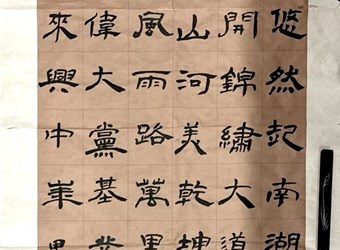 悠然起南湖
開錦繡大道
山河美乾坤
風雨路萬里
偉大黨基業
來興中華